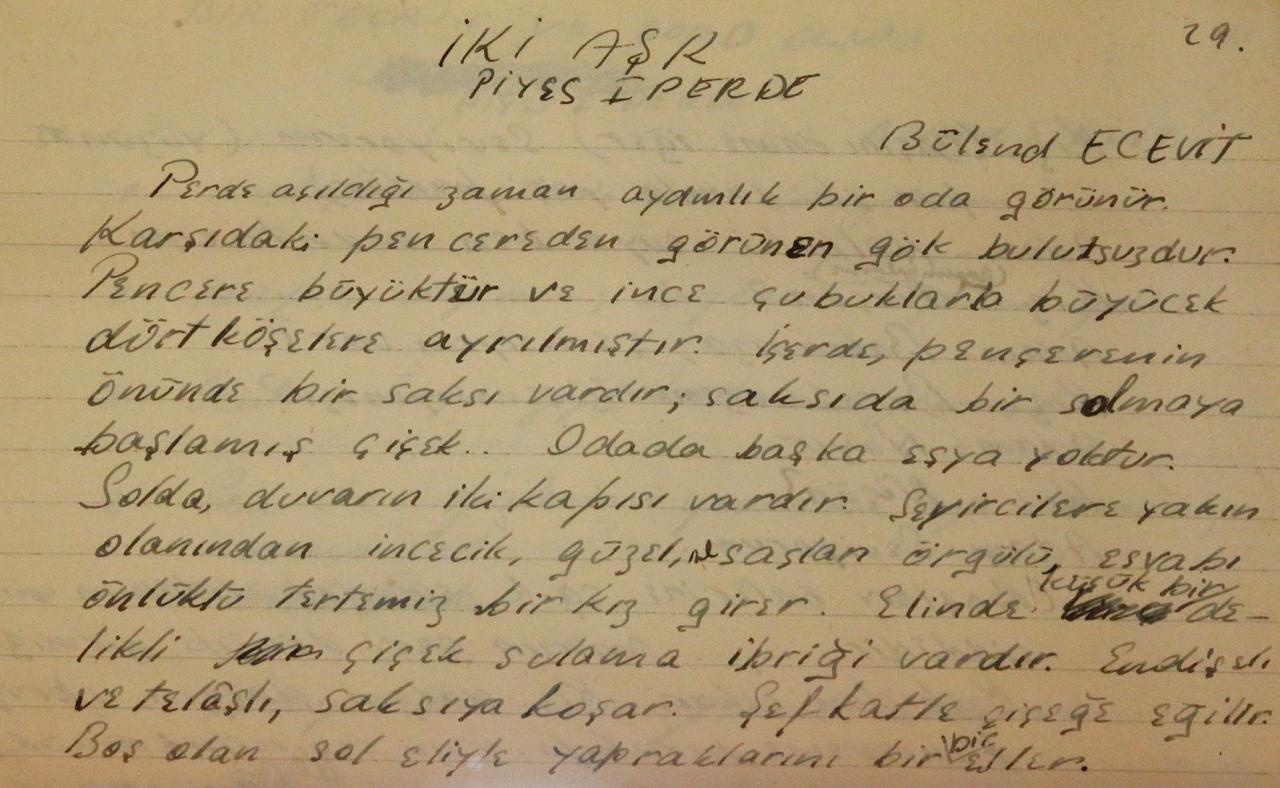 29.
İKİ AŞK
PİYES I PERDE
Bülend ECEVİT
Perde açıldığı zaman aydınlık bir oda görünür.
Karşıdaki pencereden görünen gök bulutsuzdur.
Pencere büyüktür ve ince çubuklarla büyücek
dört köşelere ayrılmıştır. İçerde, pencerenin
önünde bir saksı vardır; saksıda bir solmaya
başlamış çiçek.. Odada başka eşya yoktur.
Solda, duvarın iki kapısı vardır. Seyircilere yakın
olanından incecik, güzel, saçları örgülü, esvabı
önlüklü tertemiz bir kız girer. Elinde küçük bir de-
likli çiçek sulama ibriği vardır. Endişeli
ve telâşlı, saksıya koşar. Şefkatle çiçeğe eğilir.
Boş olan sol eliyle yapraklarını bir bir eller.